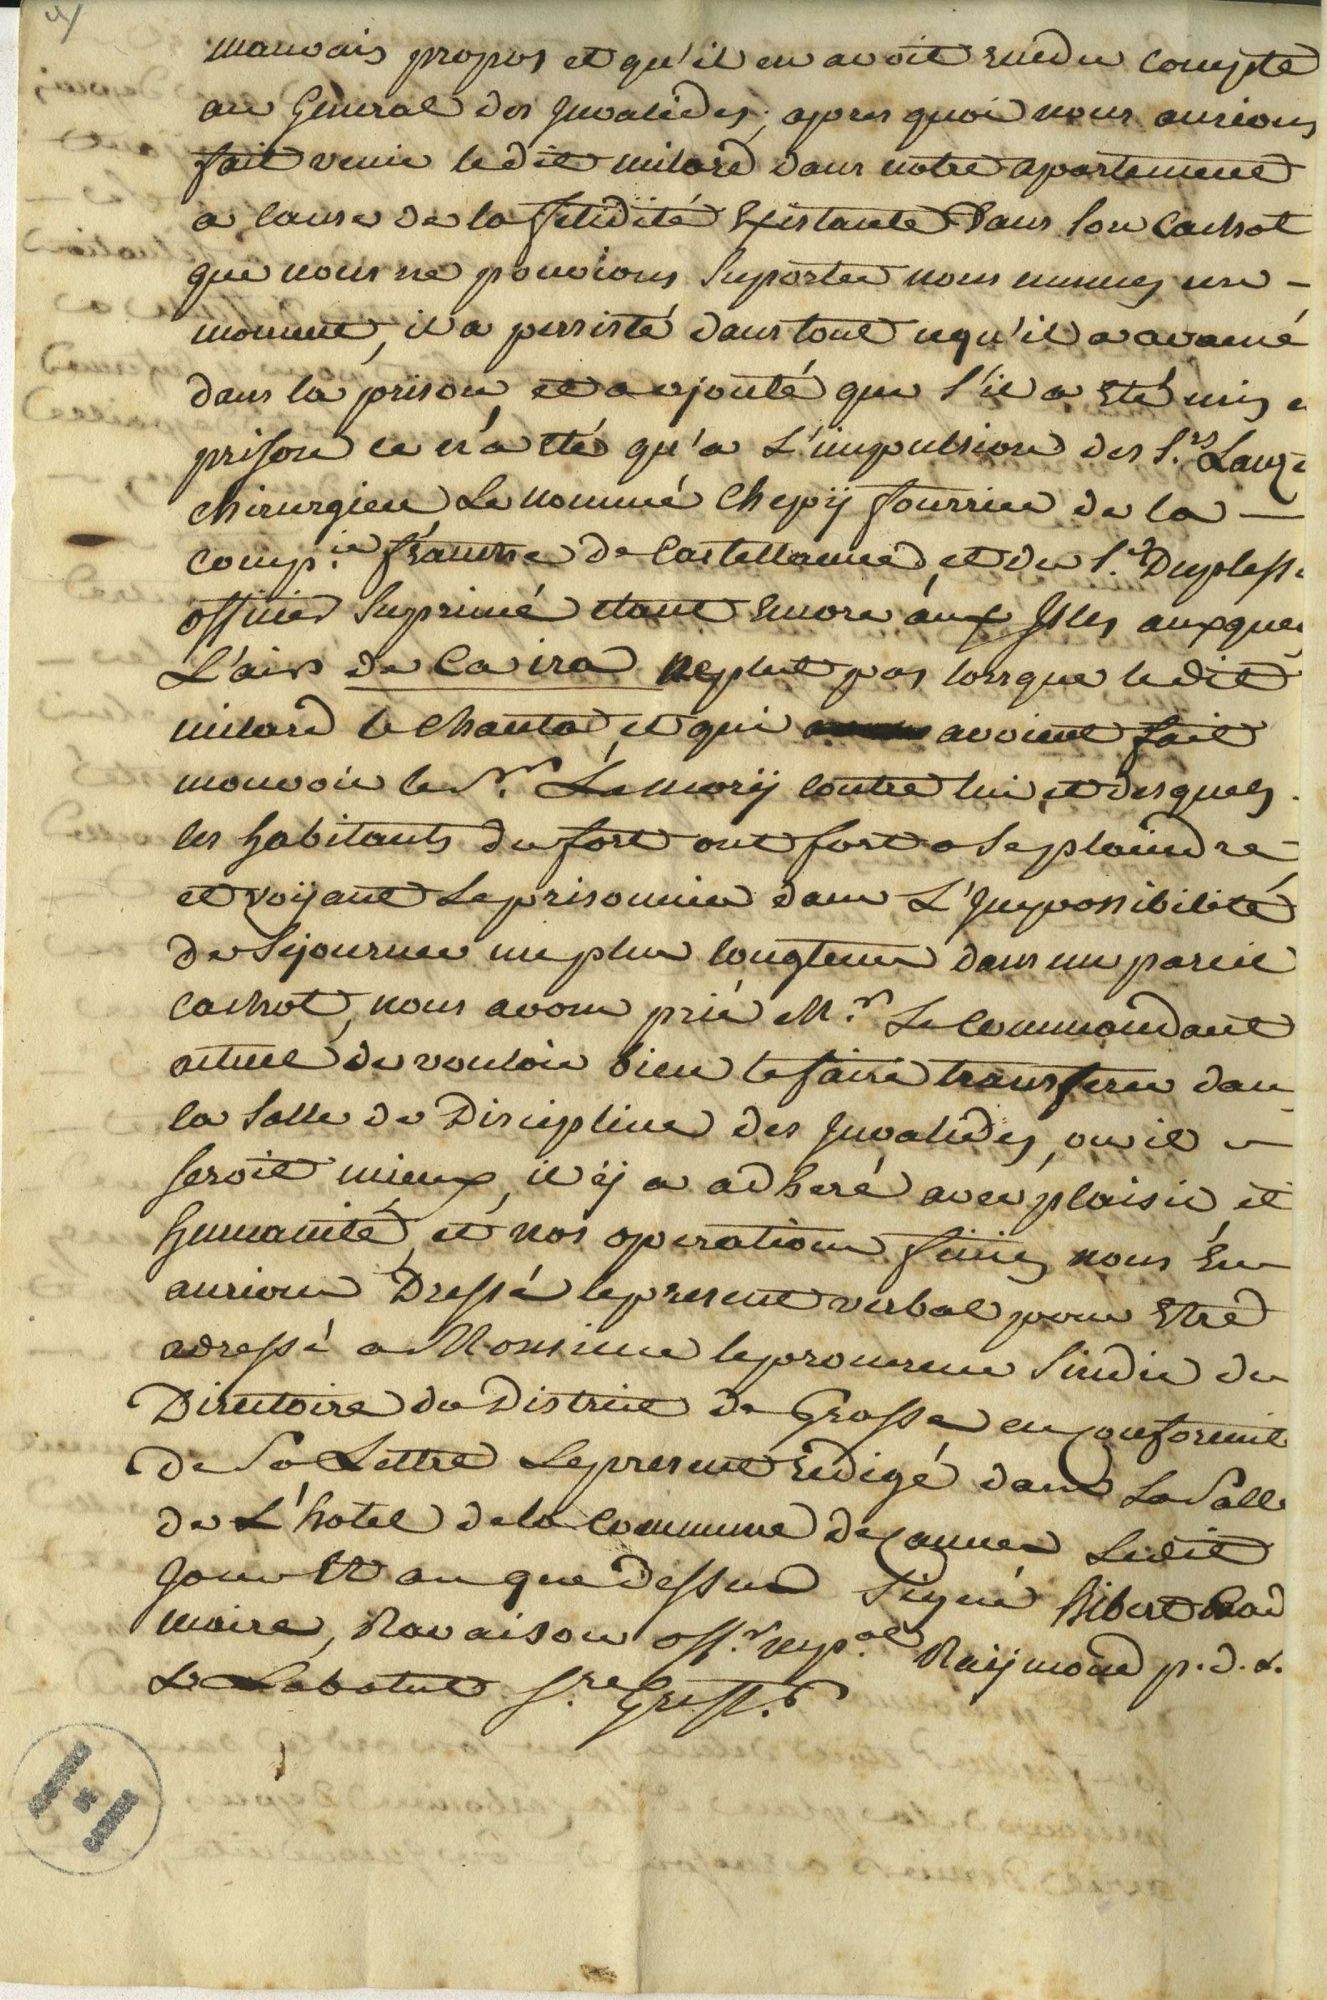 mauvais propos et qu'il en avoit rendu compte
au General des Invalides; apres quoi nous aurions
fait venir ledit milord dans notre apartement
a cause de la fetidité Existante Dans son Cachot
que nous ne pouvions Suporter nous memes un
moment, il a persisté dans tout ce qu'il a avancé
dans la prison et a ajouté que s'il a Eté mis e
prison ce n'a eté qu'a L'impulsion des S.rs Lauze
chirurgien Le nommé Chepÿ fourrier de la
comp.ie franche de Castellanne, et du S.r Duplessi
officier Suprimé etant Encore aux Isles auxque
L'air de Ca ira ne plut pas lorsque ledit
milord le Chanta, et qui avoient fait
mouvoir le S.r Lemorÿ contre lui, et desquels
les habitants du fort ont fort a se plaindre
et voÿant le prisonnier dans L'Impossibilité
de Sejourner un plus longtems dans un pareil
Cachot, nous avons prié M.r Le Commandant
actuel de vouloir bien le faire transferer dan
la Salle de Discipline des Invalides, ou il
seroit mieux, il ÿ a adheré avec plaisir et
humanité, et nos operations finies nous En
aurions Dressé le present verbal pour Etre
adressé a Monsieur le procureur Sindic du
Directoire du District de Grasse en Conformité
de Sa Lettre Le present Redigé dans La Salle
de L'hotel de la Commune de Cannes Ledit
Jour Et an que dessus Signé hibert
maire, Ravaisou off.r mup.al Raÿmond p. d. L.
Le Labatut S.re Greff.r